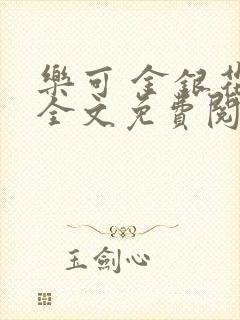 樂可 金銀花
全文免費閱
玉劍心